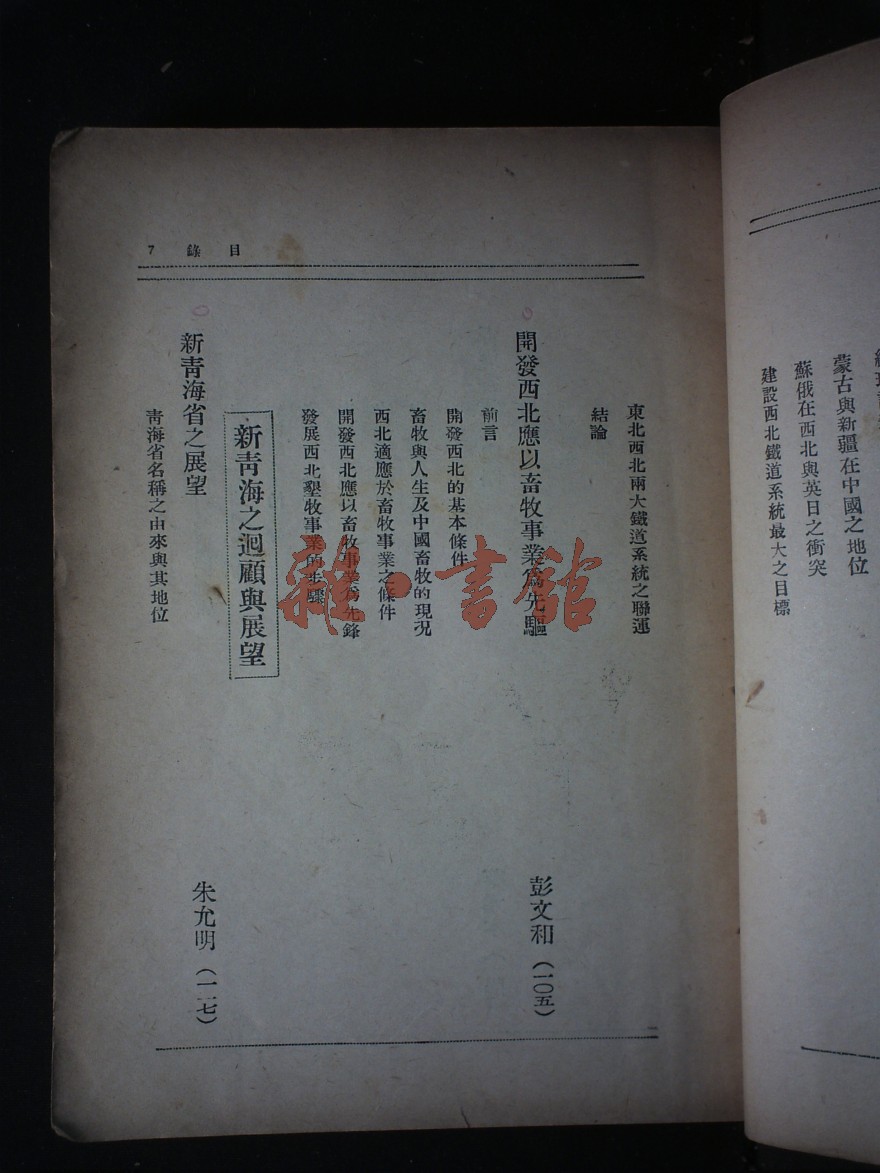 蒙古與新疆在中國之地位
蘇俄在西北與英日之衝突
建設西北鐵道系統最大之目標
目錄 7
東北西北兩大鐵道系統之聯運
結論
開發西北應以畜牧事業為先驅 彭文和(一〇五)
前言
開發西北的基本條件
畜牧與人生及中國畜牧的現況
西北適應於畜牧事業之條件
開發西北應以畜牧事業為先鋒
發展西北墾牧事業的步驟
新靑海之迴顧與展望
新靑海省之展望 朱允明(一一七)
靑海省名稱之由來與其地位
雜·書館